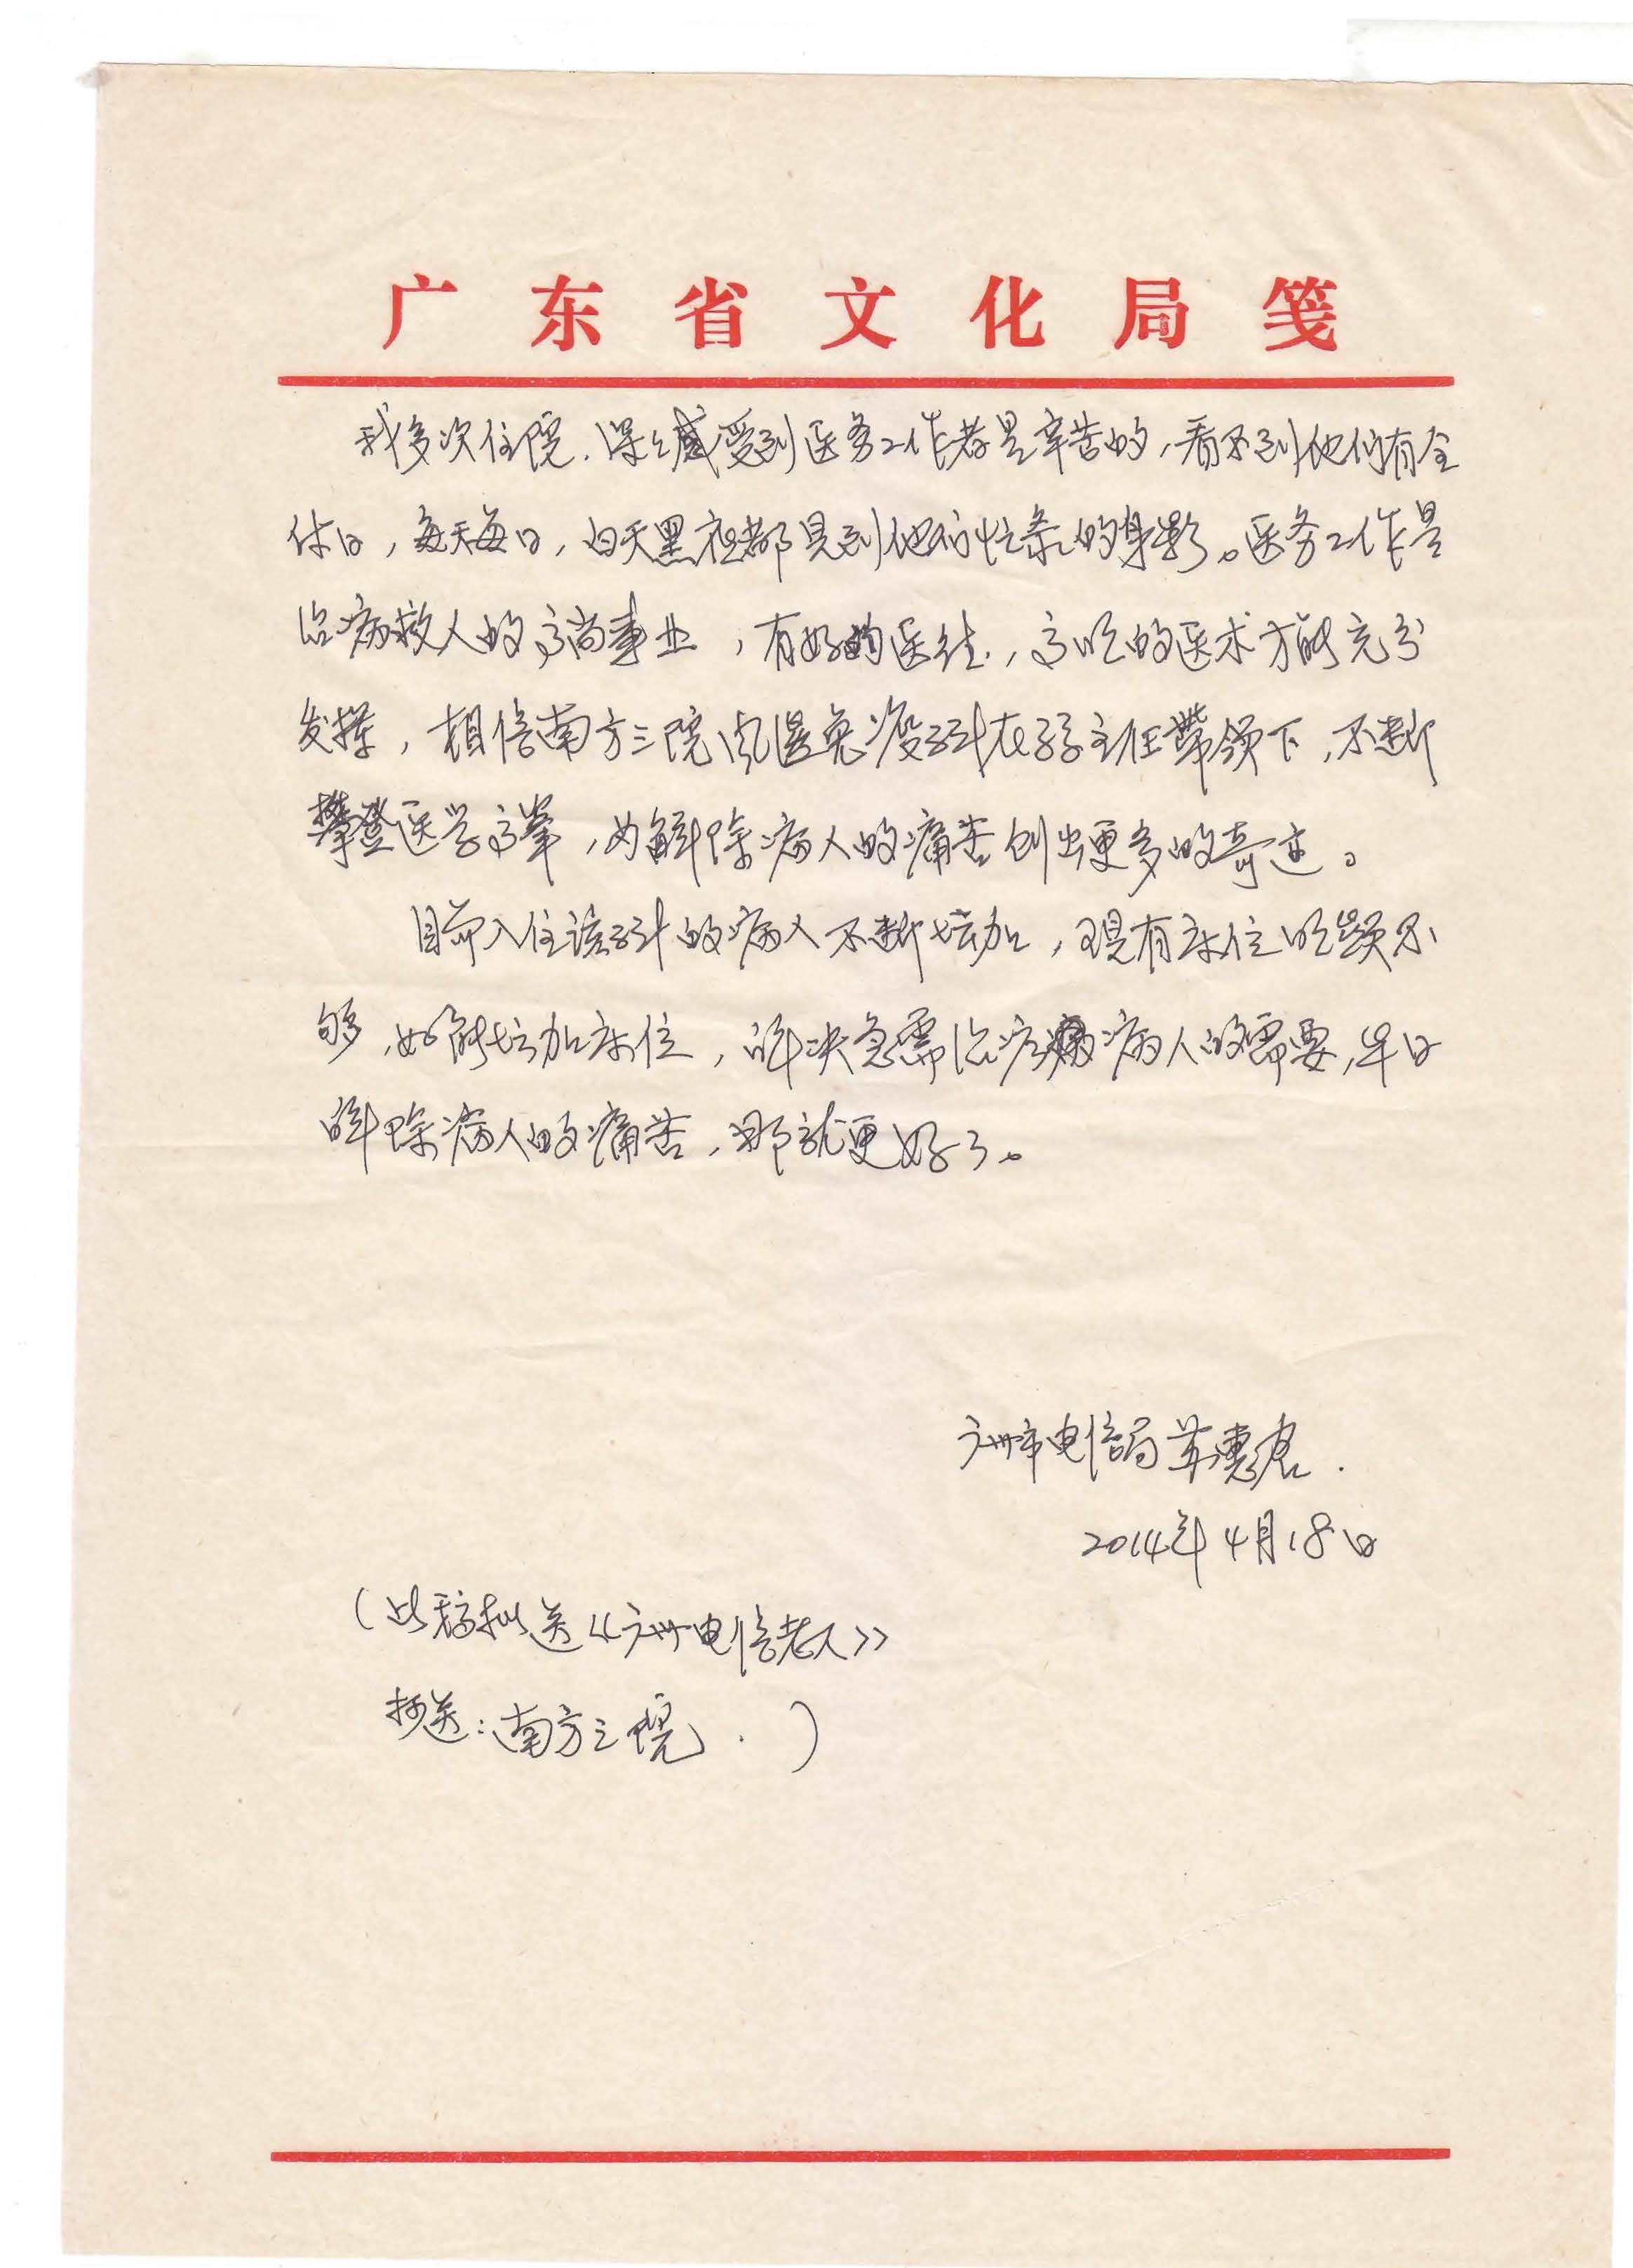 广东省文化局笺
我多次住院.深深感受到医务工作者是辛苦的,看不到他们有全
休日,每天每日,白天黑夜都见到他们忙条的身影。医务工作是
治病救人的高尚事业,有好的医德,高明的医术才能充分
发挥,相信南方三院风湿免疫科在主任带领下,不断
攀登医学高峯,为解除病人的痛苦创出更多的奇迹。
目前入住该科的病人不断增加,现有床位明显不
够,如能增加床位,解决急需治疗病人的需要,早日
解除病人的痛苦,那就更好了。
广州市电信局 惠
2014年4月18日
(此稿拟送《广州电信老人》
抄送:南方三院.)